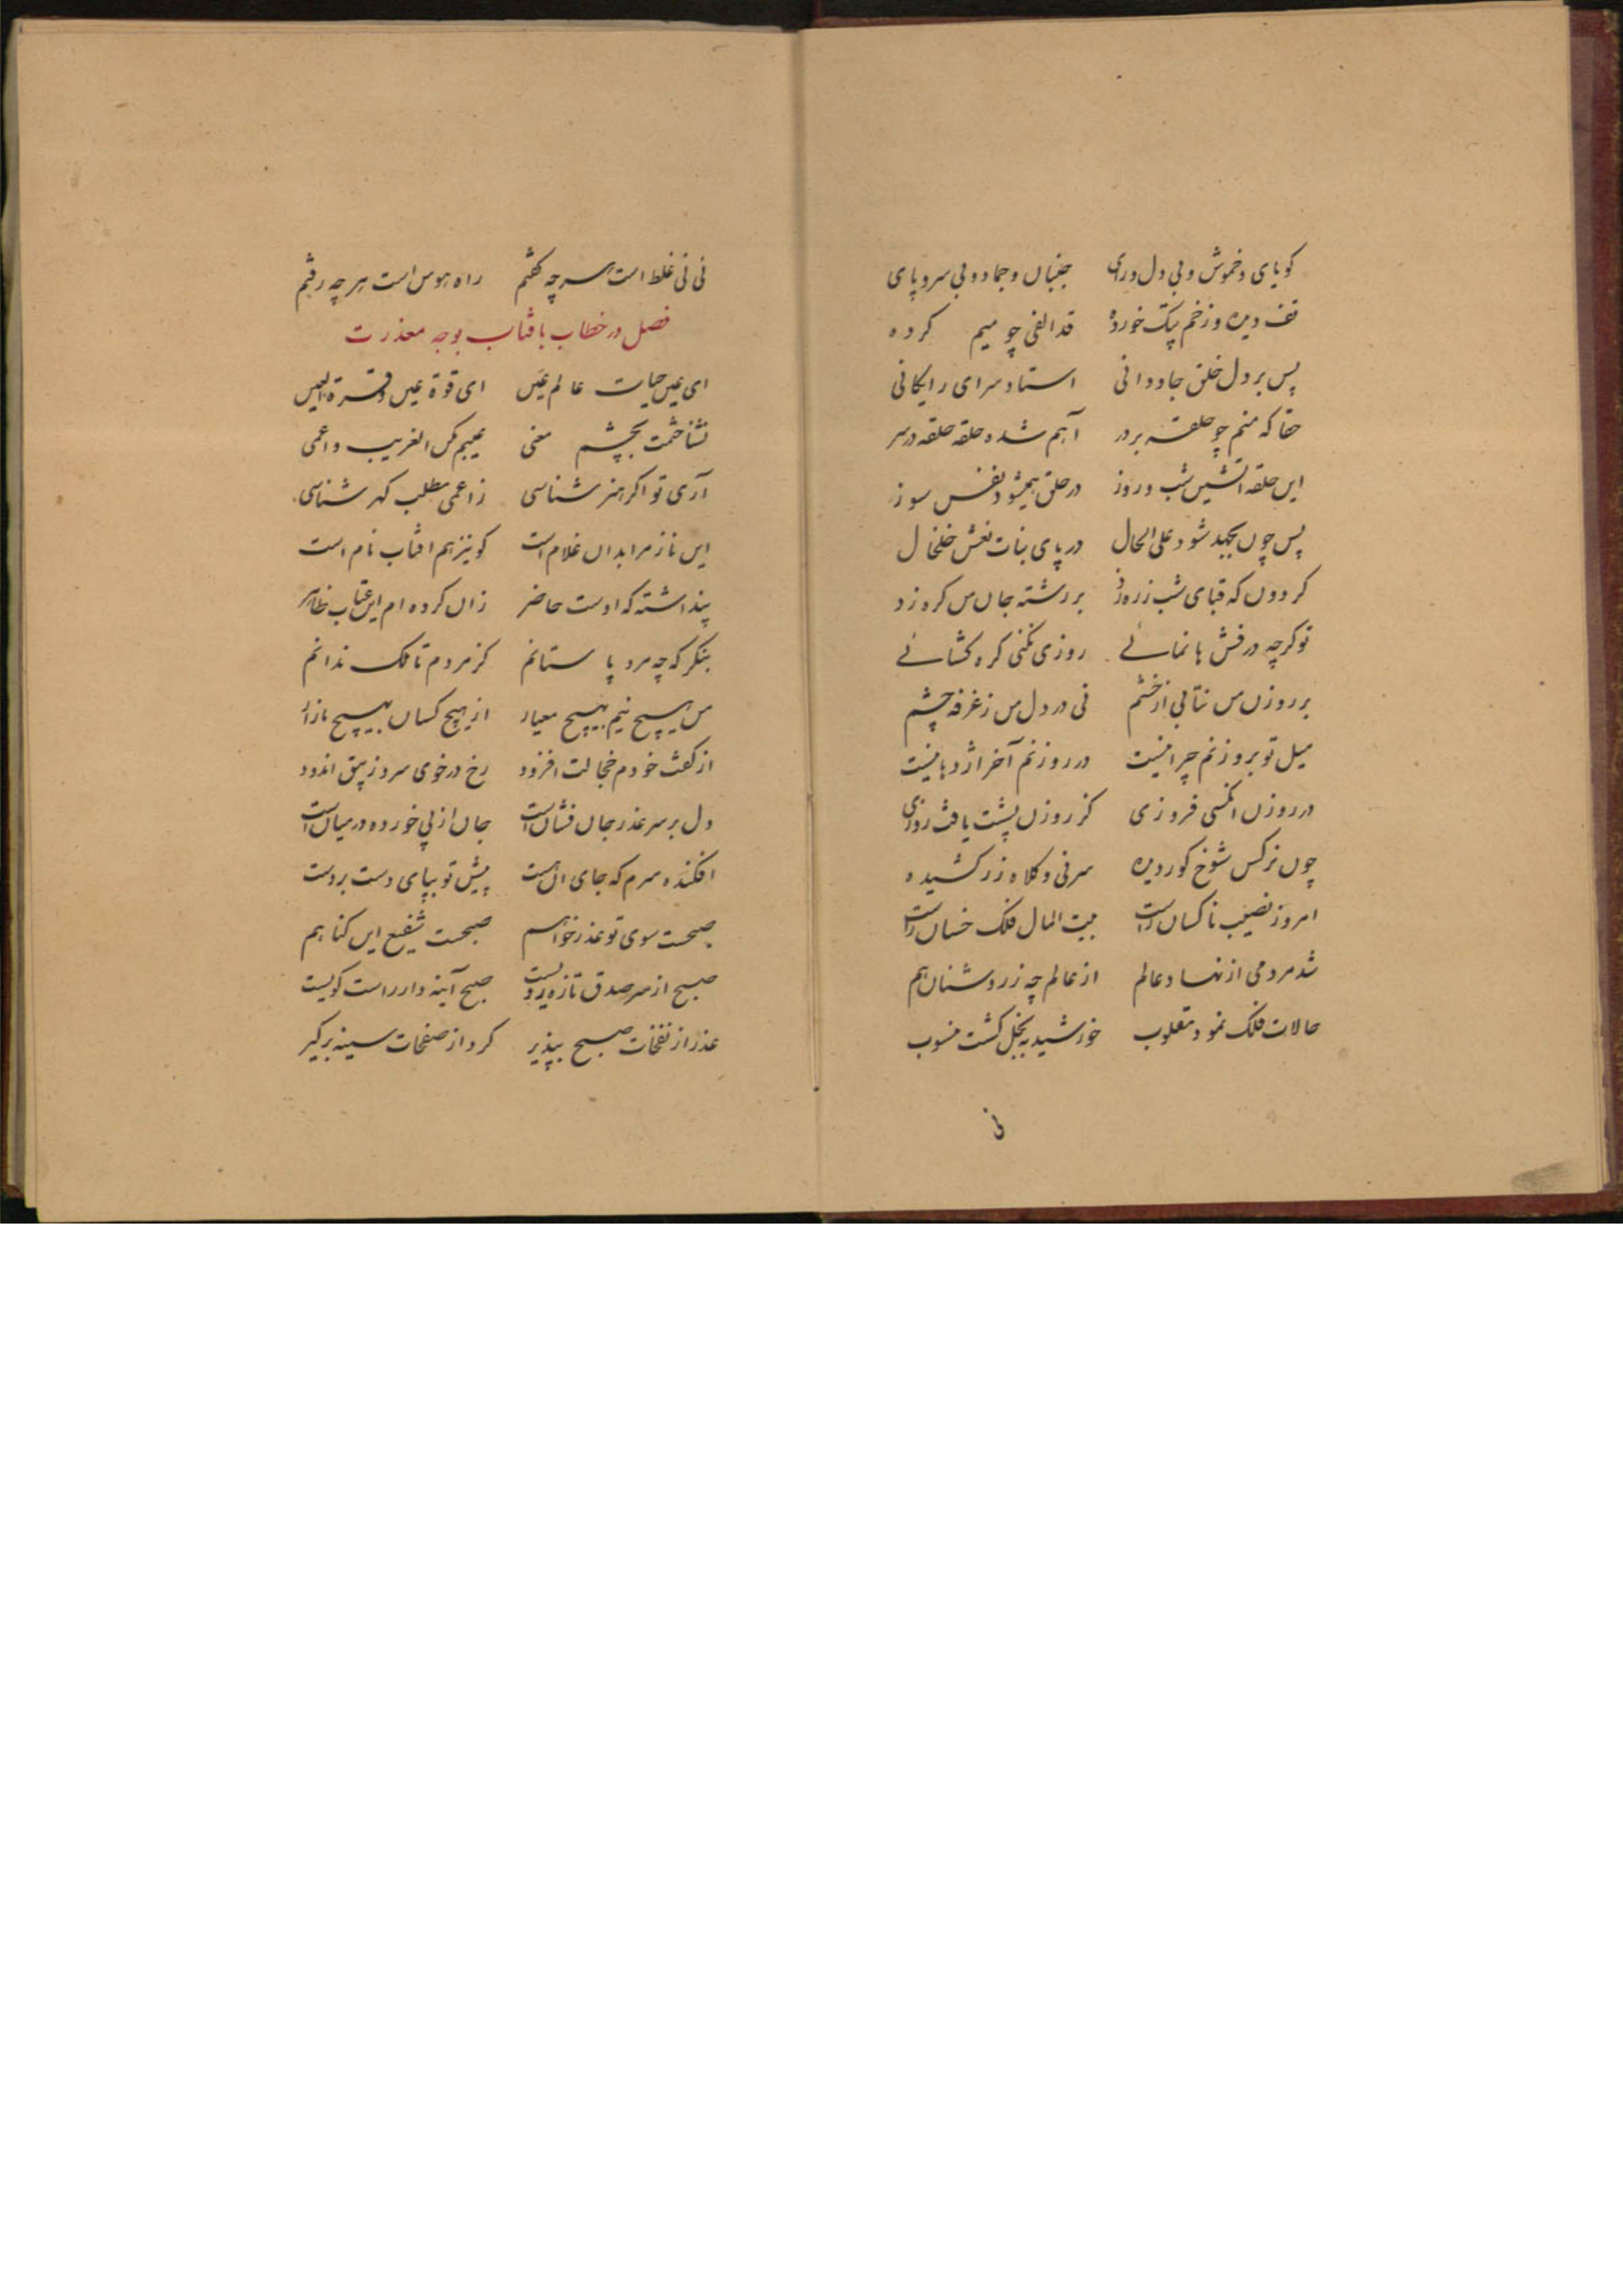 کویای وخموش و بی دل ورای جنبان وجماد و بی سروپای
تف دیده وزخم پتک خورده قد الفی چو میم کرده
پس بر دل خلق جاودانی استاد سرای رایکانی
حقا که منم چو حلقه بر در آهم شده حلقه حلقه در سر
این حلقه اتشین شب و روز در حلق همیشود نفس سوز
پس چون بجهد شود علی الحال در پای بنات نعش خلخال
کردون که قبای شب زره زد بر رشته جان من کره زد
تو کرچه درفش ها نمائی روزی نکنی کره کشائی
بر روزن من نتابی از خشم نی در دل من ز غرفه چشم
میل تو بروزنم چرا نیست در روزنم آخر اژدها نیست
در روزن انکسی فروزی کز روزن پشت یافت روزی
چون نرکس شوخ کور دیده سر نی و کلاه زر کشیده
امروز نصیب ناکسان راست بیت المال فلک خسان راست
شد مردمی از نهاد عالم از عالم چه ز روشنان هم
حالات فلک نمود مقلوب خورشید ببخل کشت منسوب
نی
نی نی غلط است هر چه کفتم راه هوس است هر چه رفتم
فصل در خطاب بافتاب بوجه معذرت
ای عین حیات عالم عین ای قوة عین و قرة العین
نشناختمت بچشم معنی عیبم مکن الغریب و اعمی
آری تو اکر هنر شناسی ز اعمی مطلب کهر شناسی
این ناز مرا بدان غلام است کو نیز هم افتاب نام است
پنداشته که اوست حاضر زان کرده ام این عتاب ظاهر
بنکر که چه مرد پا ستانم کز مردم تا ملک ندانم
من هیچ نیم بهیچ معیار از هیچ کسان بهیچ مازار
از کفت خودم خجالت افزود رخ در خوی سرو زیبق اندود
دل بر سر عذر جان فشان است جان از پی خورده در میان است
افکنده سرم که جای آن هست پیش تو بپای دست بر دست
صبحست سوی تو عذر خواهم صبحست شفیع این کناهم
صبح از سر صدق تازه رویست صبح آینه دار راست کویست
عذر از نفخات صبح بپذیر کرد از صفحات سینه برکیر